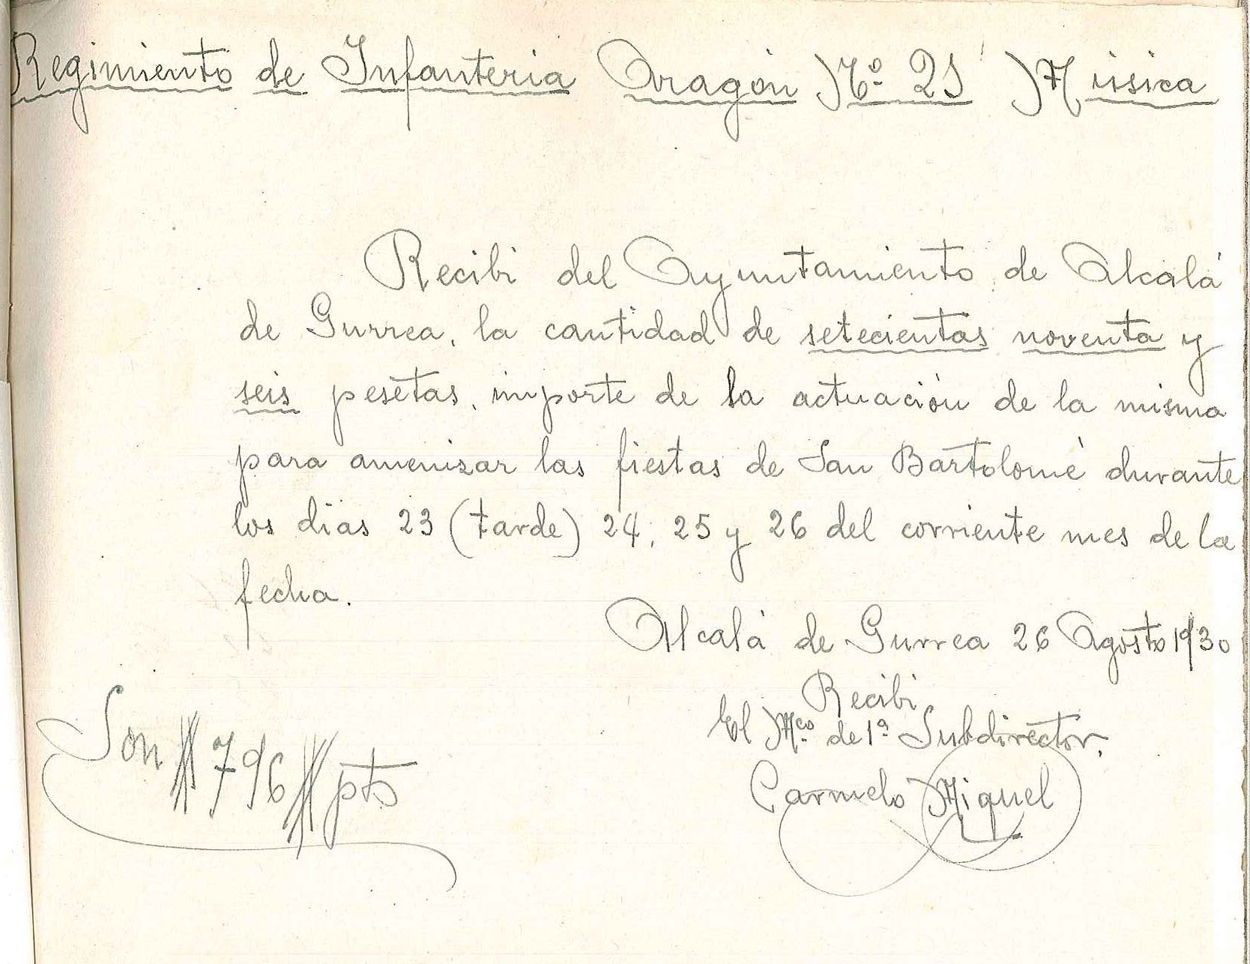 Regimiento de Infanteria Aragón Nº 21 Música
Recibi del Ayuntamiento de Alcalá
de Gurrea, la cantidad de setecientas noventa y
seis pesetas, importe de la actuación de la misma
para amenizar las fiestas de San Bartolomé durante
los dias 23 (tarde) 24, 25 y 26 del corriente mes de la
fecha.
Alcalá de Gurrea 26 Agosto 1930
Recibi
El Mco de 1ª Subdirector,
Carmelo Miquel
Son #796# pts